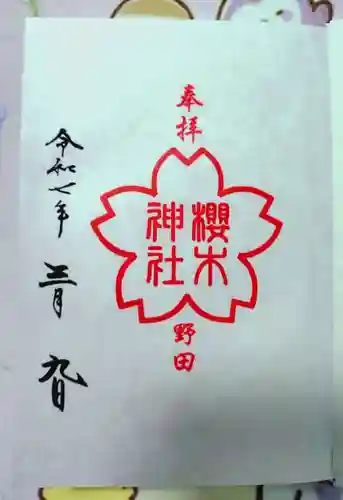 奉拝
櫻木
神社
野田
令和七年
三月
九日